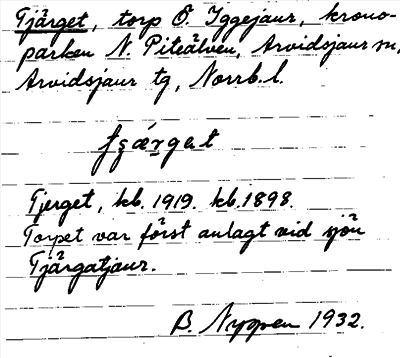 Tjärget, torp Ö. Iggejaur, krono-
parken N. Piteälven, Arvidsjaur sn,
Arvidsjaur tg, Norrb. l.
Tjerget, kb. 1919. kb. 1898.
Torpet var först anlagt vid sjön
Tjärgatjaur.
B. Nygren 1932.